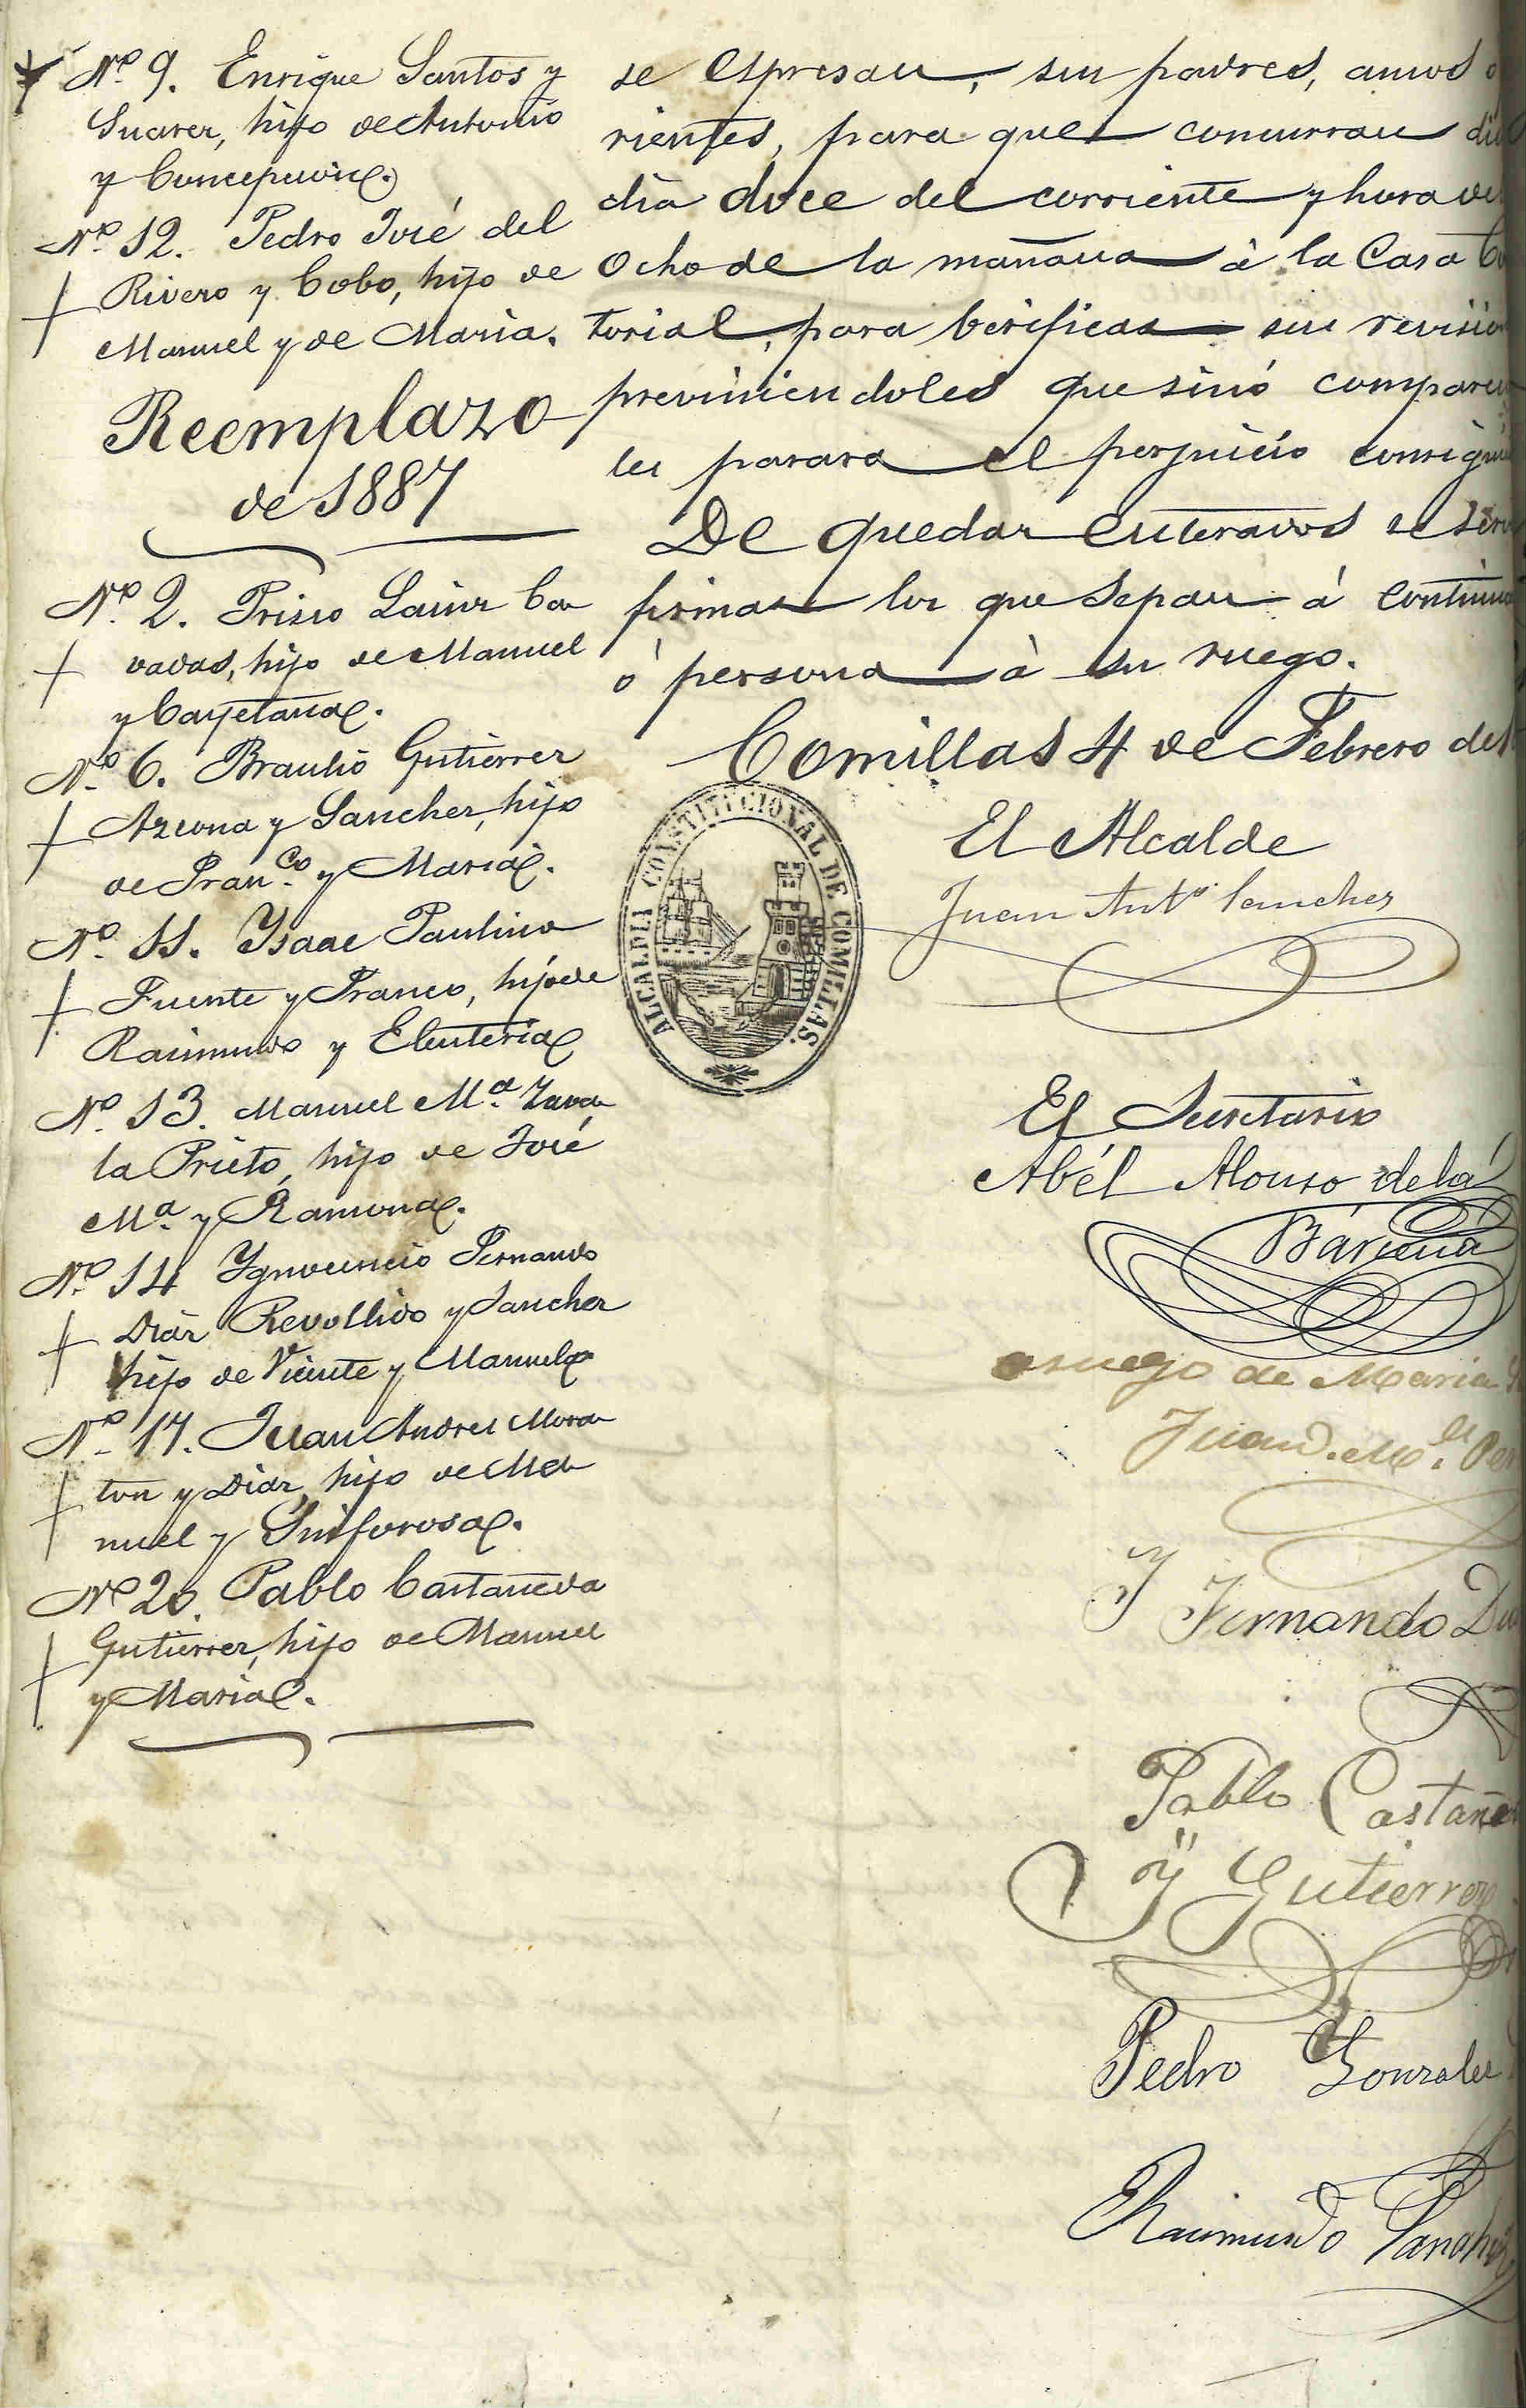 Nº 9. Enrique Santos y
Suarez, hijo de Antonio
y Concepcion.
Nº 12. Pedro José del
Rivero y Cobo, hijo de
Manuel y de Maria.
Reemplazo
de 1887
Nº 2. Lainz Ca
vadas, hijo de Manuel
y Cayetana.
Nº 6. Braulio Gutierrez
Azcona y Sanchez, hijo
de Franco. y Maria.
Nº 11. Ysaac Paulino
Fuente y Franco, hijo de
Raimundo y Eleuteria
Nº 13. Manuel Mª. Zava
la Prieto, hijo de José
Mª. y Ramona.
Nº 14 Ygnocencio Fernando
Diaz Revollido y Sanchez
hijo de Vicente y Manuela
Nº 17. Juan Andres Mora
ton y Diaz, hijo de Ma
nuel y Sinforosa.
Nº 20. Pablo Castañeda
Gutierrez, hijo de Manuel
y Maria.
se espresan, sus padres, amos
rientes, para que concurran
dia doce del corriente y hora de
Ocho de la mañana à la Casa
torial, para berificar su
previniendoles que sinó
les parara el perjuicio
De quedar enterados se
firmar los que sepan á
ò persona à su ruego.
Comillas 4 de Febrero de
ALCALDIA CONSTITUCIONAL DE COMILLAS.
El Alcalde
Juan Anto. Sanchez
El Secretario
Abél Alonso de la
Bárcena
a ruego de Maria
Juan
Y Fernando
Pablo Castañeda
Y Gutierrez
Pedro Gonzalez
Raimundo Sanchez